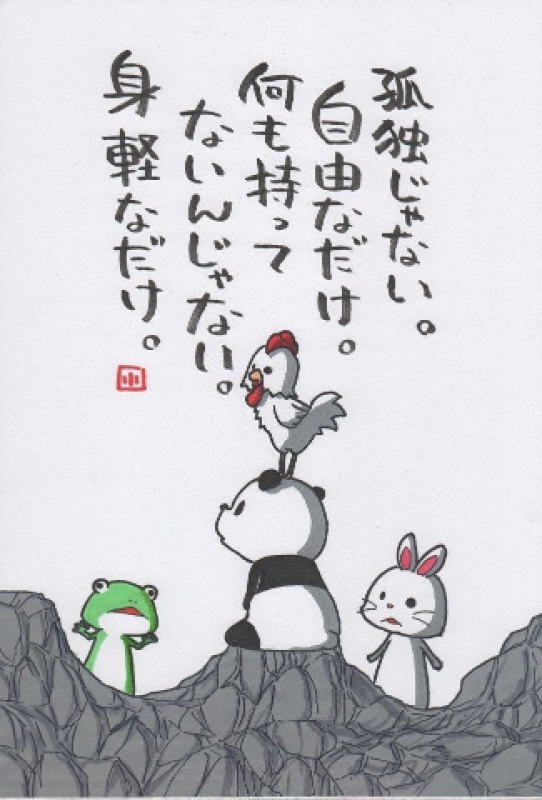 孤独じゃない。
自由なだけ。
何も持って
ないんじゃない。
身軽なだけ。
小